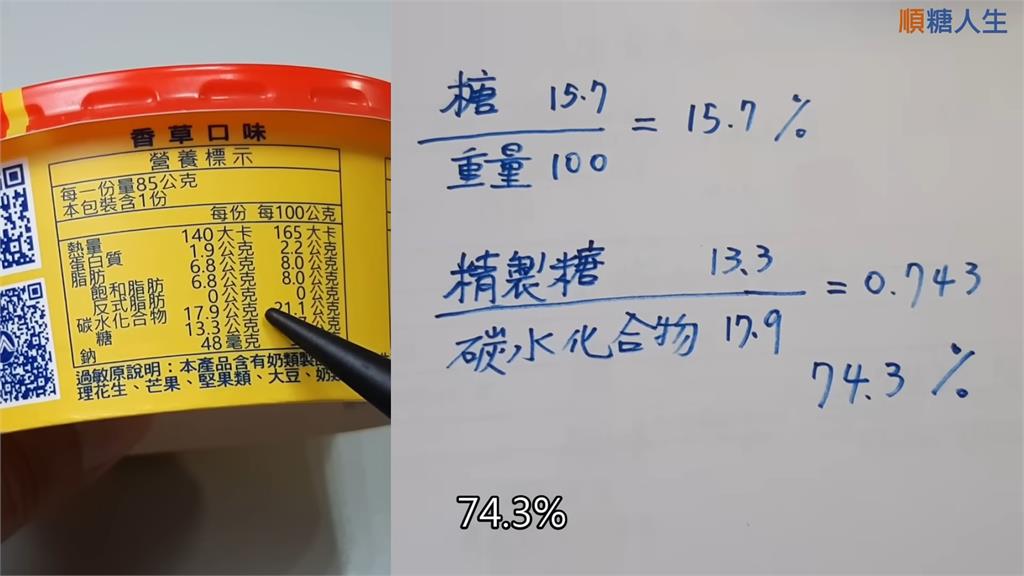 順糖人生
香草口味
營養標示
每一份量85公克
本包裝含1份
每份 每100公克
熱量 140大卡 165大卡
蛋白質 1.9公克 2.2公克
脂肪 6.8公克 8.0公克
飽和脂肪 6.8公克 8.0公克
反式脂肪 0公克 0公克
碳水化合物 17.9公克 21.1公克
糖 13.3公克
鈉 48毫克
過敏原說明：本產品含有奶類製
理花生、芒果、堅果類、大豆、奶類
糖 15.7
= 15.7 %
重量 100
精製糖 13.3
= 0.743
碳水化合物 17.9
74.3 %
74.3%